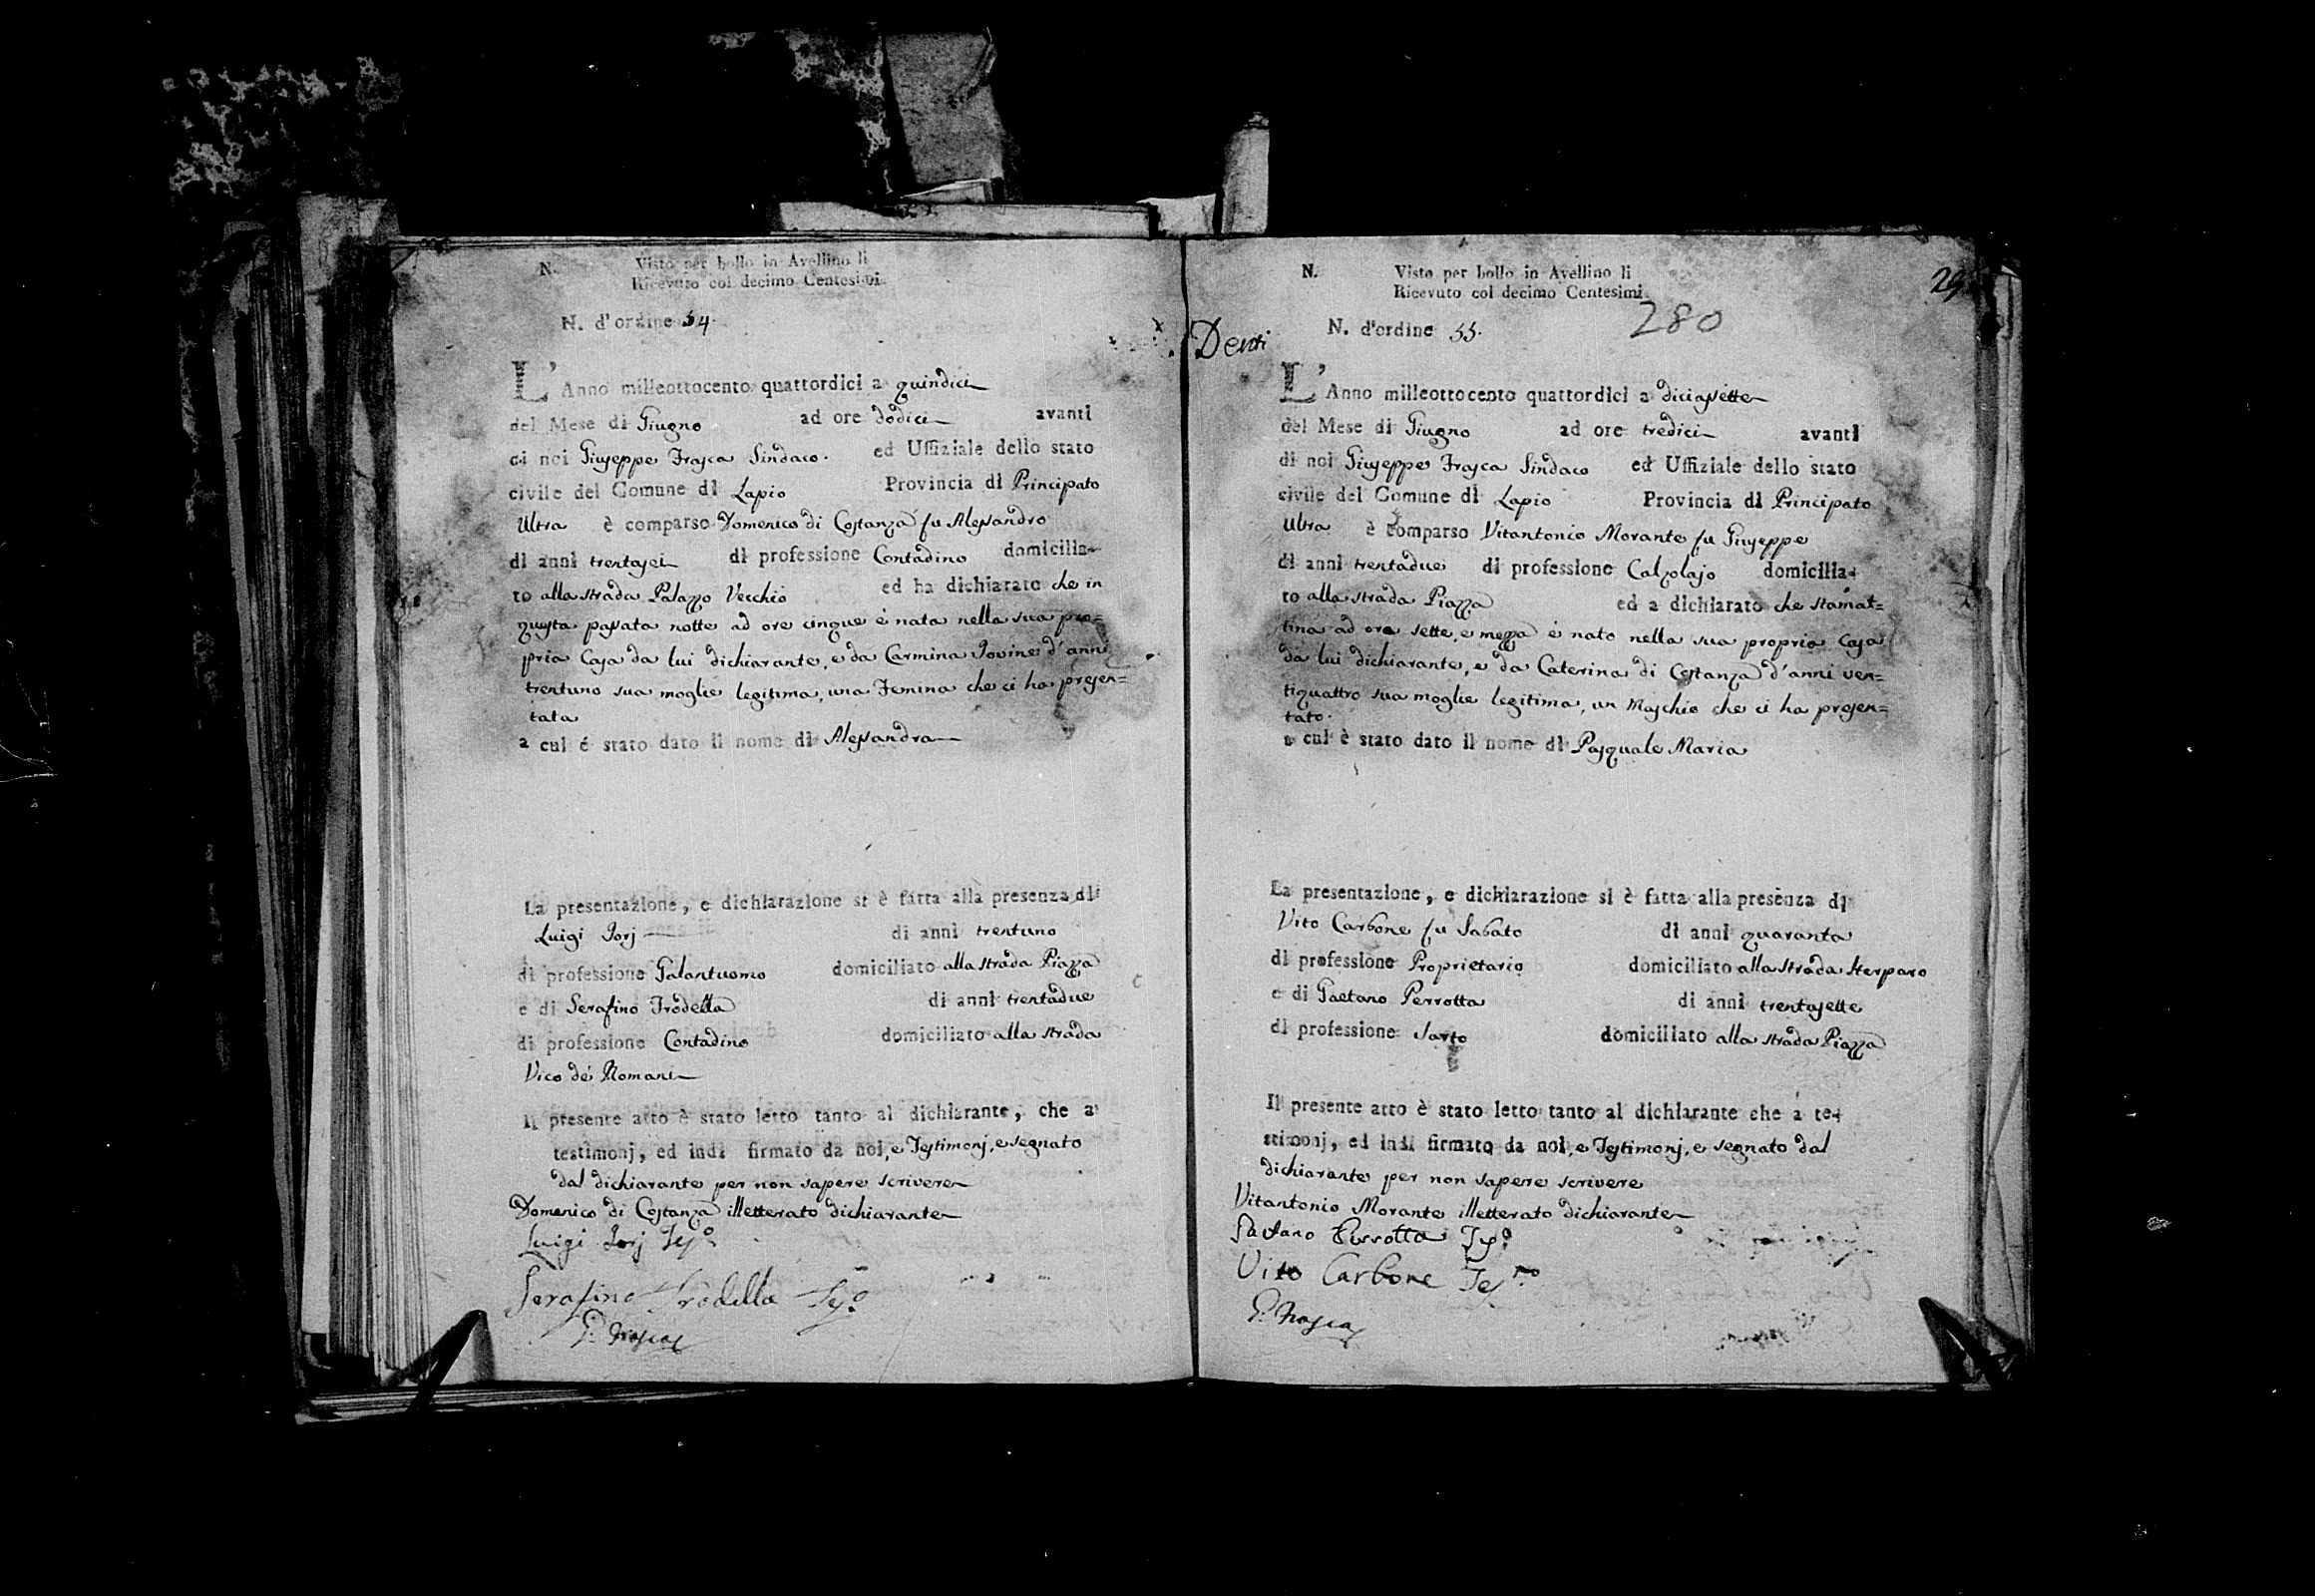 N. Visto per bollo in Avellino li
Ricevuto col decimo Centesimi
N. d'ordine 54.
L'Anno milleottocento quattordici a quindici
del Mese di Giugno ad ore dodici avanti
di noi Giuseppe Frasca Sindaco. ed Uffiziale dello stato
civile del Comune di Lapio Provincia di Principato
Ultra è comparso Domenico di Costanza fu Alessandro
di anni trentasei di professione Contadino domicilia-
to alla strada Palazzo Vecchio ed ha dichiarato che in
questa passata notte ad ore cinque è nata nella sua pro=
pria Casa da lui dichiarante, e da Carmina Iovine d'anni
trentuno sua moglie legitima, una Femina che ci ha presen=
tata
a cui é stato dato il nome di Alessandra
La presentazione, e dichiarazione si è fatta alla presenza di
Luigi Iorj di anni trentuno
di professione Galantuomo domiciliato alla strada Piazza
e di Serafino Frodella di anni trentadue
di professione Contadino domiciliato alla strada
Vico de' Romani
Il presente atto è stato letto tanto al dichiarante, che a
testimonj, ed indi firmato da noi, e Testimonj, e segnato
dal dichiarante per non sapere scrivere
Domenico di Costanza illetterato dichiarante
Luigi Iorj Tes.o
Serafino Frodella Tes.o
G. Frasca
Denti
29
N. Visto per bollo in Avellino li
Ricevuto col decimo Centesimi
280
N. d'ordine 55.
L'Anno milleottocento quattordici a diciassette
del Mese di Giugno ad ore tredici avanti
di noi Giuseppe Frasca Sindaco ed Uffiziale dello stato
civile del Comune di Lapio Provincia di Principato
Ultra è comparso Vitantonio Morante fu Giuseppe
di anni trentadue di professione Calzolajo domicilia-
to alla strada Piazza ed a dichiarato che stamat=
tina ad ora sette, e mezza è nato nella sua propria Casa
da lui dichiarante, e da Caterina di Costanza d'anni ven=
tiquattro sua moglie legitima, un Maschio che ci ha presen=
tato.
a cui è stato dato il nome di Pasquale Maria
La presentazione, e dichiarazione si è fatta alla presenza di
Vito Carbone fu Sabato di anni quaranta
di professione Proprietario domiciliato alla strada Sterparo
e di Gaetano Perrotta di anni trentasette
di professione Sarto domiciliato alla strada Piazza
Il presente atto è stato letto tanto al dichiarante che a te-
stimonj, ed indi firmato da noi, e Testimonj, e segnato dal
dichiarante per non sapere scrivere
Vitantonio Morante illetterato dichiarante
Gaetano Perrotta Tes.o
Vito Carbone Tes.mo
G. Frasca